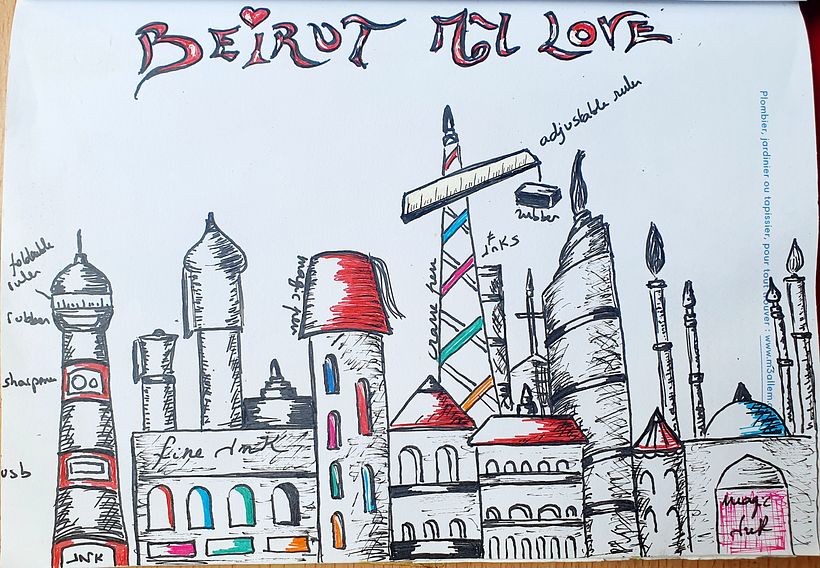 BEIRUT MY LOVE
adjustable ruler
rubber
INKS
foldable
ruler
rubber
magic pen
crane pen
sharpener
usb
fine Ink
INK
magic
Ink
Plombier, jardinier ou tapissier, pour tout